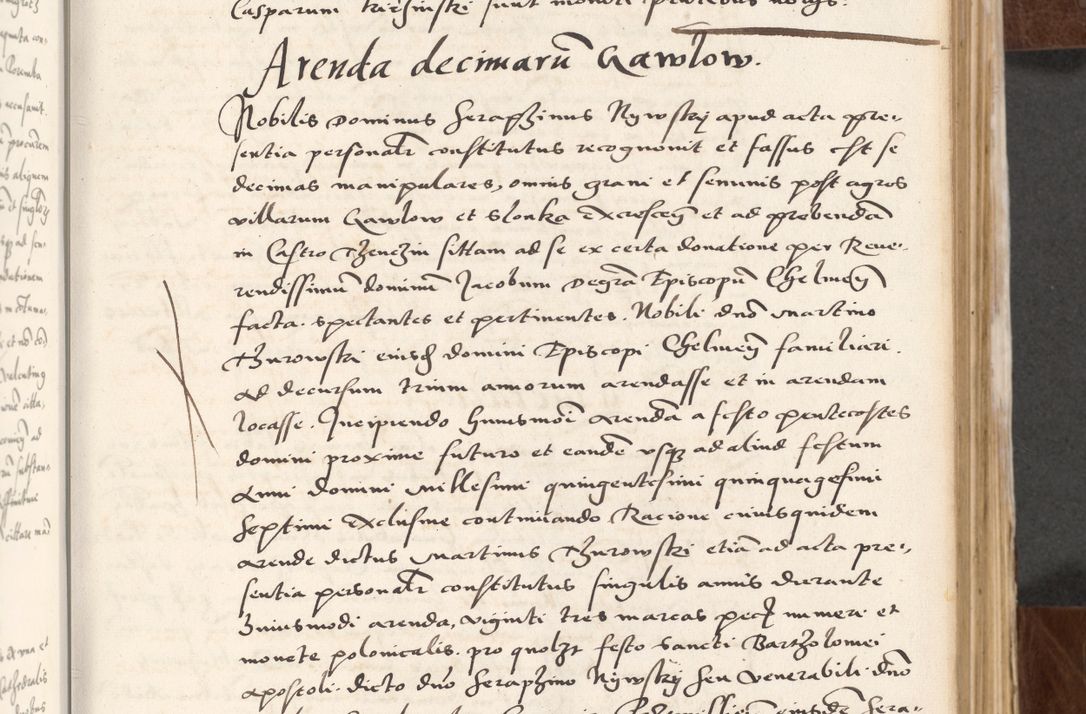 Casparum
Arenda decimarū Gawlow.
Nobilis Dominus Seraphinus Nywsky apud acta pre-
sentia personalr constitutus recognovit et fassus est se
decimas manipulares, omnis grani et seminis post agros
villarum Gawlow et Slonka Excrescen et ad prebendā
in Castro sittam ad se ex certa donatione per Reve-
rendissimū dominū Jacobum Degrā Episcopū Chelmen
facta. spectantes et pertinentes. Nobili dno Martino
Thurowski eiusd domini Episcopi Chelmen familiari.
ad decursum trium annorum arendasse et in arendam
locasse. Incipiendo huiusmoi Arendā a festo pentecostes
domini proxime futuro et eandē vsq ad aliud festum
Anni domini Millesimi quingentesimi quinquagesimi
septimi Exclusive continuando Racione cuiusquidem
arende dictus Martinus Thurowski etiā ad acta pre-
sentia personalr constitutus singulis annis durante
huiusmodi arenda, viginti tres marcas pecq numeri et
monete polonicalis. pro quolzt festo Sancti Bartholomei
apostoli. dicto dno Seraphino Nywsky seu venerabili dno